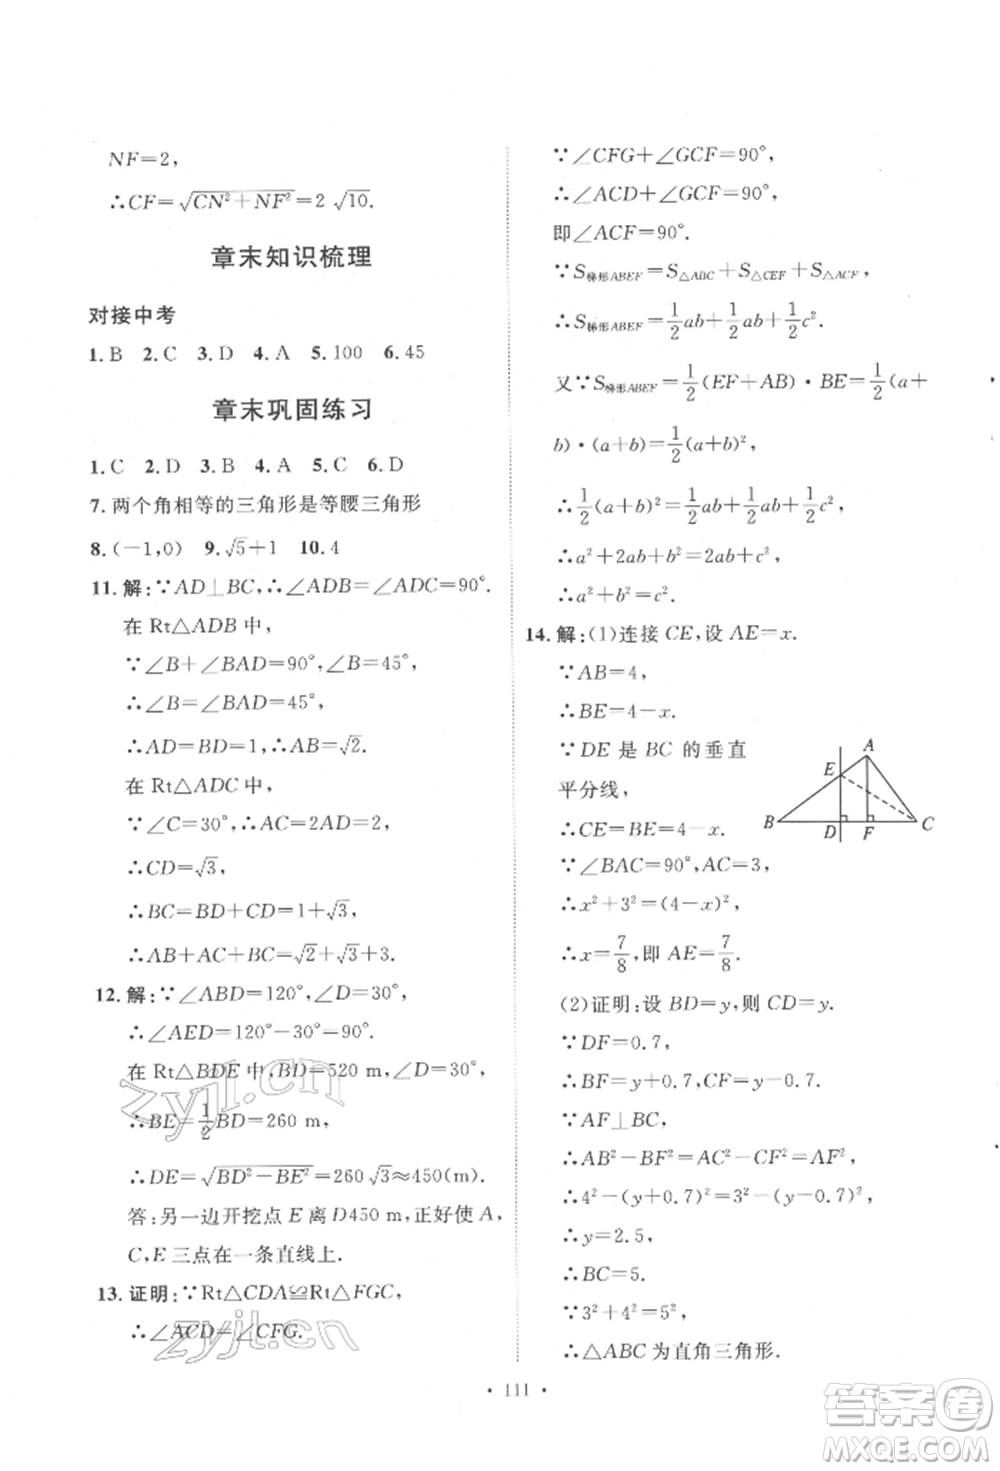 NF=2,
∴CF=√(CN²+NF²)=2√10.
章末知识梳理
对接中考
1.B 2.C 3.D 4.A 5.100 6.45
章末巩固练习
1.C 2.D 3.B 4.A 5.C 6.D
7.两个角相等的三角形是等腰三角形
8.(-1,0) 9.√5+1 10.4
11.解:∵AD⊥BC,∴∠ADB=∠ADC=90°.
在 Rt△ADB 中,
∵∠B+∠BAD=90°,∠B=45°,
∴∠B=∠BAD=45°,
∴AD=BD=1,∴AB=√2.
在 Rt△ADC 中,
∵∠C=30°,∴AC=2AD=2,
∴CD=√3,
∴BC=BD+CD=1+√3,
∴AB+AC+BC=√2+√3+3.
12.解:∵∠ABD=120°,∠D=30°,
∴∠AED=120°-30°=90°.
在 Rt△BDE 中,BD=520 m,∠D=30°,
∴BE=1/2BD=260 m,
∴DE=√(BD²-BE²)=260√3≈450(m).
答:另一边开挖点 E 离 D450 m,正好使 A,
C,E 三点在一条直线上.
13.证明:∵Rt△CDA≌Rt△FGC,
∴∠ACD=∠CFG.
∵∠CFG+∠GCF=90°,
∴∠ACD+∠GCF=90°,
即∠ACF=90°.
∵S梯形ABEF=S△ABC+S△CEF+S△ACF,
∴S梯形ABEF=1/2ab+1/2ab+1/2c².
又∵S梯形ABEF=1/2(EF+AB)·BE=1/2(a+
b)·(a+b)=1/2(a+b)²,
∴1/2(a+b)²=1/2ab+1/2ab+1/2c²,
∴a²+2ab+b²=2ab+c²,
∴a²+b²=c².
14.解:(1)连接 CE,设 AE=x.
∵AB=4,
∴BE=4-x.
∵DE 是 BC 的垂直
平分线,
∴CE=BE=4-x.
∵∠BAC=90°,AC=3,
∴x²+3²=(4-x)²,
∴x=7/8,即 AE=7/8.
(2)证明:设 BD=y,则 CD=y.
∵DF=0.7,
∴BF=y+0.7,CF=y-0.7.
∵AF⊥BC,
∴AB²-BF²=AC²-CF²=AF²,
∴4²-(y+0.7)²=3²-(y-0.7)²,
∴y=2.5,
∴BC=5.
∵3²+4²=5²,
∴△ABC 为直角三角形.
A
E
B
D
F
C
· 111 ·
zyjl.cn
zyjl.cn
答案卷
MXQE.COM